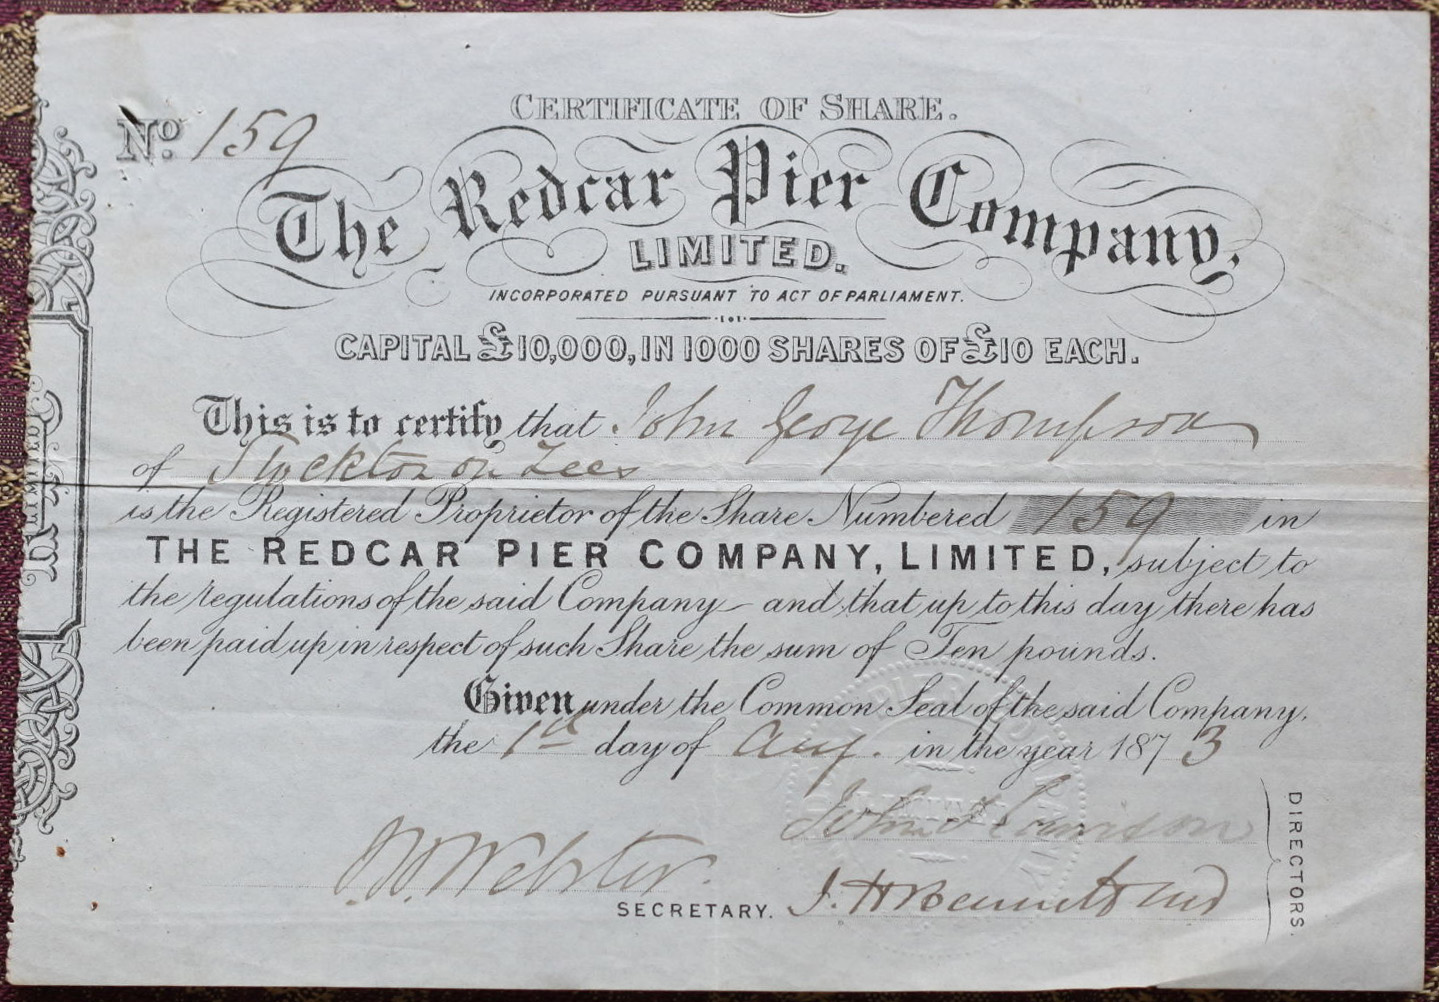 CERTIFICATE OF SHARE.
No. 159
The Redcar Pier Company,
LIMITED.
INCORPORATED PURSUANT TO ACT OF PARLIAMENT.
CAPITAL £10,000, IN 1000 SHARES OF £10 EACH.
This is to certify that John George Thompson
of Stockton on Tees
is the Registered Proprietor of the Share Numbered 159 in
THE REDCAR PIER COMPANY, LIMITED, subject to
the regulations of the said Company and that up to this day there has
been paid up in respect of such Share the sum of Ten pounds.
Given under the Common Seal of the said Company,
the 1st day of Aug. in the year 1873
John
Webster.
SECRETARY.
J. H. Bennett
DIRECTORS.